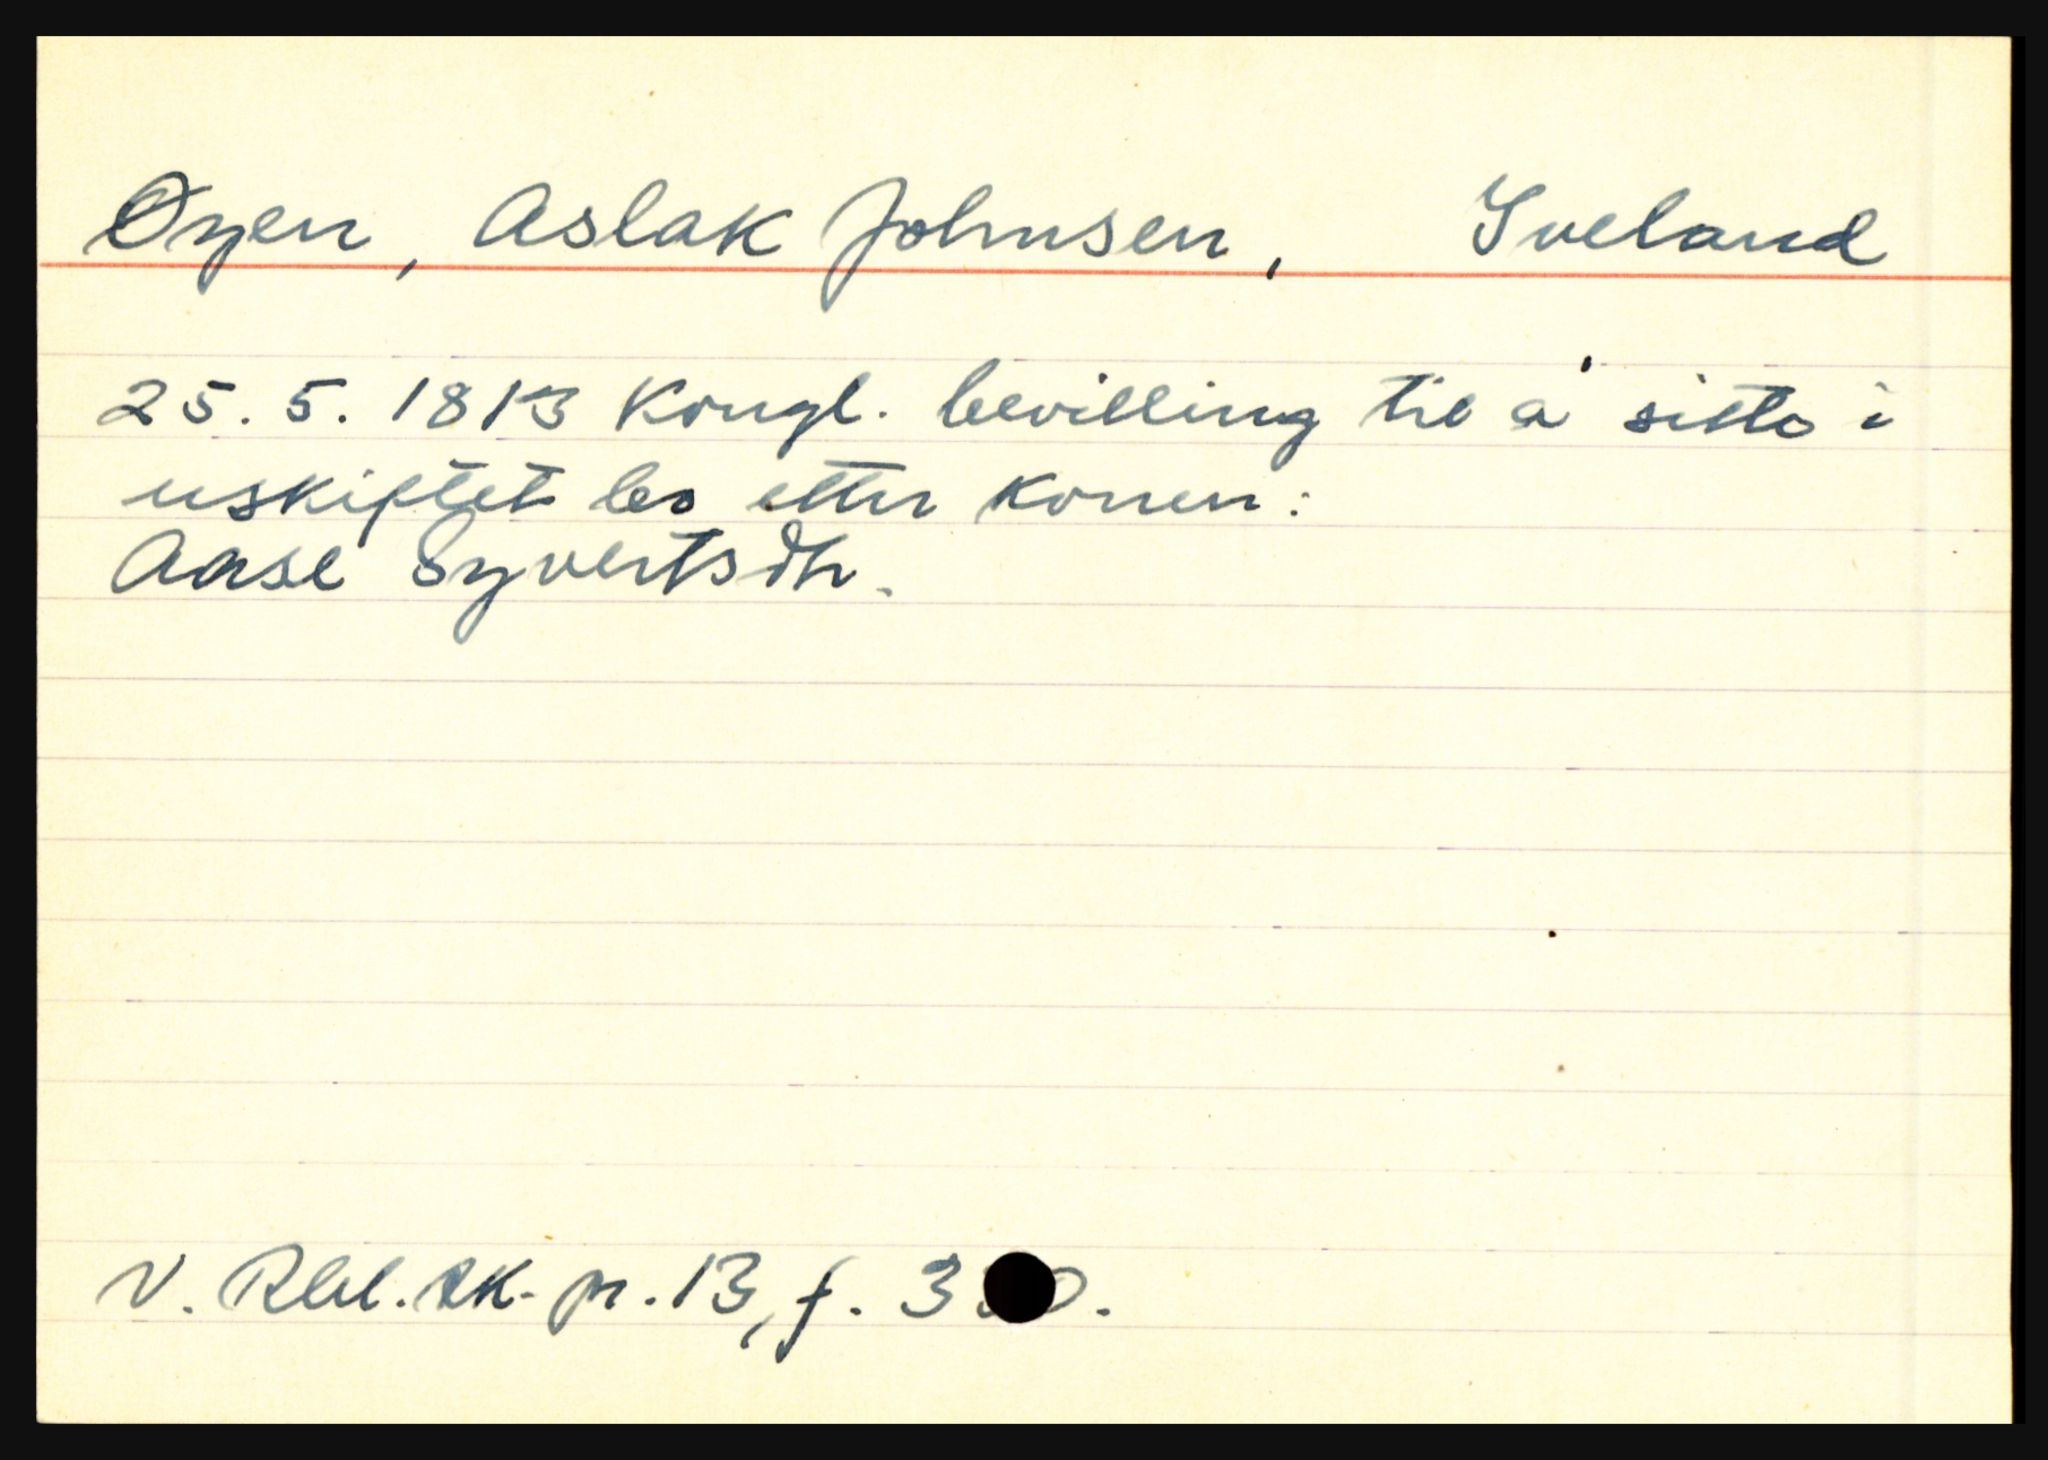 Øyen, Aslak Johnsen, Iveland
25. 5. 1813 Kongl. bevilling til å sitte i
uskiftet bo etter konen:
Aase Syvertsdtr.
V. Rbl. sk. pr. 13, f.